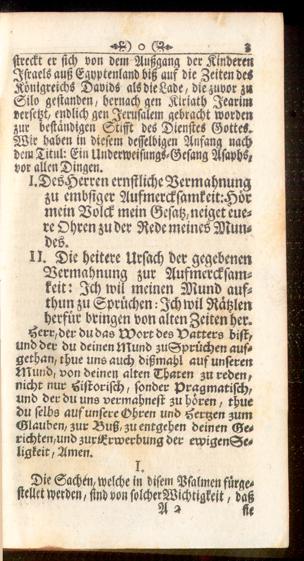 o 3
streckt er sich von dem Außgang der Kinderen
Israels auß Egyptenland biß auf die Zeiten des
Königreichs Davids als die Lade, die zuvor zu
Silo gestanden, hernach gen Kiriath Jearim
versetzt, endlich gen Jerusalem gebracht worden
zur beständigen Stifft des Dienstes Gottes.
Wir haben in diesem desselbigen Anfang nach
dem Titul: Ein Underweisungs-Gesang Asaphs,
vor allen Dingen.
I. Des Herren ernstliche Vermahnung
zu embsiger Aufmercksamkeit: Hör
mein Volck mein Gesatz, neiget eue-
re Ohren zu der Rede meines Mun-
des.
II. Die heitere Ursach der gegebenen
Vermahnung zur Aufmercksam-
keit: Ich wil meinen Mund auf-
thun zu Sprüchen: Ich wil Rätzlen
herfür bringen von alten Zeiten her.
Herr, der du das Wort des Vatters bist,
und der du deinen Mund zu Sprüchen auf-
gethan, thue uns auch dißmahl auf unseren
Mund, von deinen alten Thaten zu reden,
nicht nur Historisch, sonder Pragmatisch,
und der du uns vermahnest zu hören, thue
du selbs auf unsere Ohren und Hertzen zum
Glauben, zur Buß, zu entgehen deinen Ge-
richten, und zur Erwerbung der ewigen Se-
ligkeit, Amen.
I.
Die Sachen, welche in disem Psalmen fürge-
stellet werden, sind von solcher Wichtigkeit, daß
A 2 sie